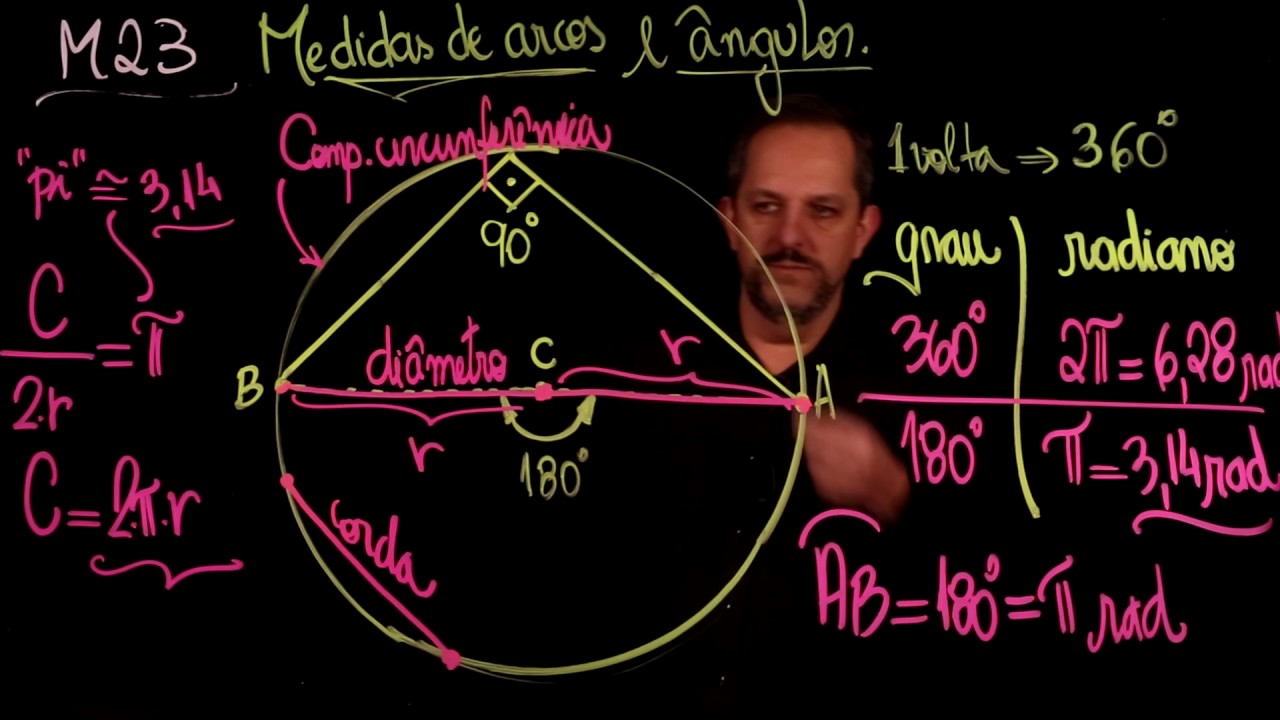 M23 Medidas de arcos e ângulos.
"pi" ≅ 3,14
C/2.r = π
C = 2.π.r
Comp. circunferência
90°
diâmetro
C
r
B
A
r
180°
corda
1 volta ⇒ 360°
grau | radiano
360° | 2π = 6,28 rad
180° | π = 3,14 rad
AB = 180° = π rad